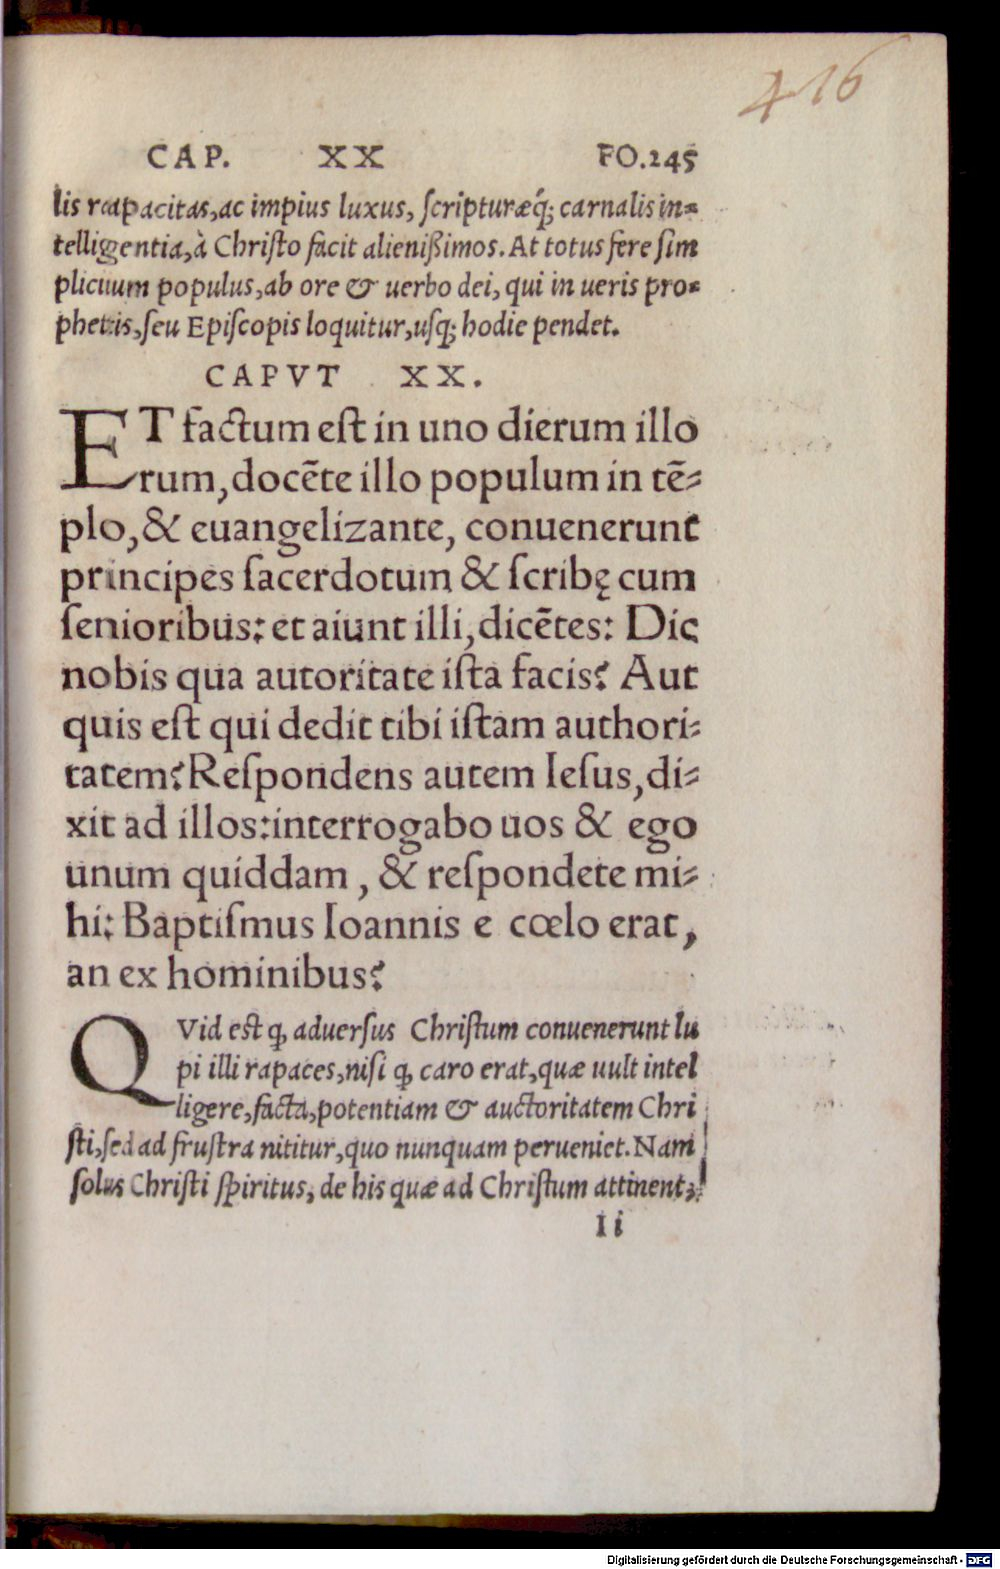 416
CAP. XX FO.245
lis rapacitas,ac impius luxus, ſcripturæq́; carnalis in-
telligentia,à Chriſto facit alienißimos. At totus fere ſim
plicium populus,ab ore & uerbo dei, qui in ueris pro-
phetis,ſeu Epiſcopis loquitur,uſq; hodie pendet.
CAPVT XX.
ET factum eſt in uno dierum illo
rum,docēte illo populum in tē-
plo,& euangelizante, conuenerunt
principes ſacerdotum & ſcribę cum
ſenioribus: et aiunt illi,dicētes: Dic
nobis qua autoritate iſta facis? Aut
quis eſt qui dedit tibi iſtam authori-
tatem? Reſpondens autem Ieſus,di-
xit ad illos:interrogabo uos & ego
unum quiddam , & reſpondete mi-
hi: Baptiſmus Ioannis e cœlo erat,
an ex hominibus?
QVid eſt ꝙ aduerſus Chriſtum conuenerunt lu
pi illi rapaces,niſi ꝙ caro erat,quæ uult intel
ligere,facta,potentiam & auctoritatem Chri
ſti,ſed ad fruſtra nititur,quo nunquam perueniet. Nam
ſolus Chriſti ſpiritus, de his quæ ad Chriſtum attinent,
Ii
Digitalisierung gefördert durch die Deutsche Forschungsgemeinschaft - DFG